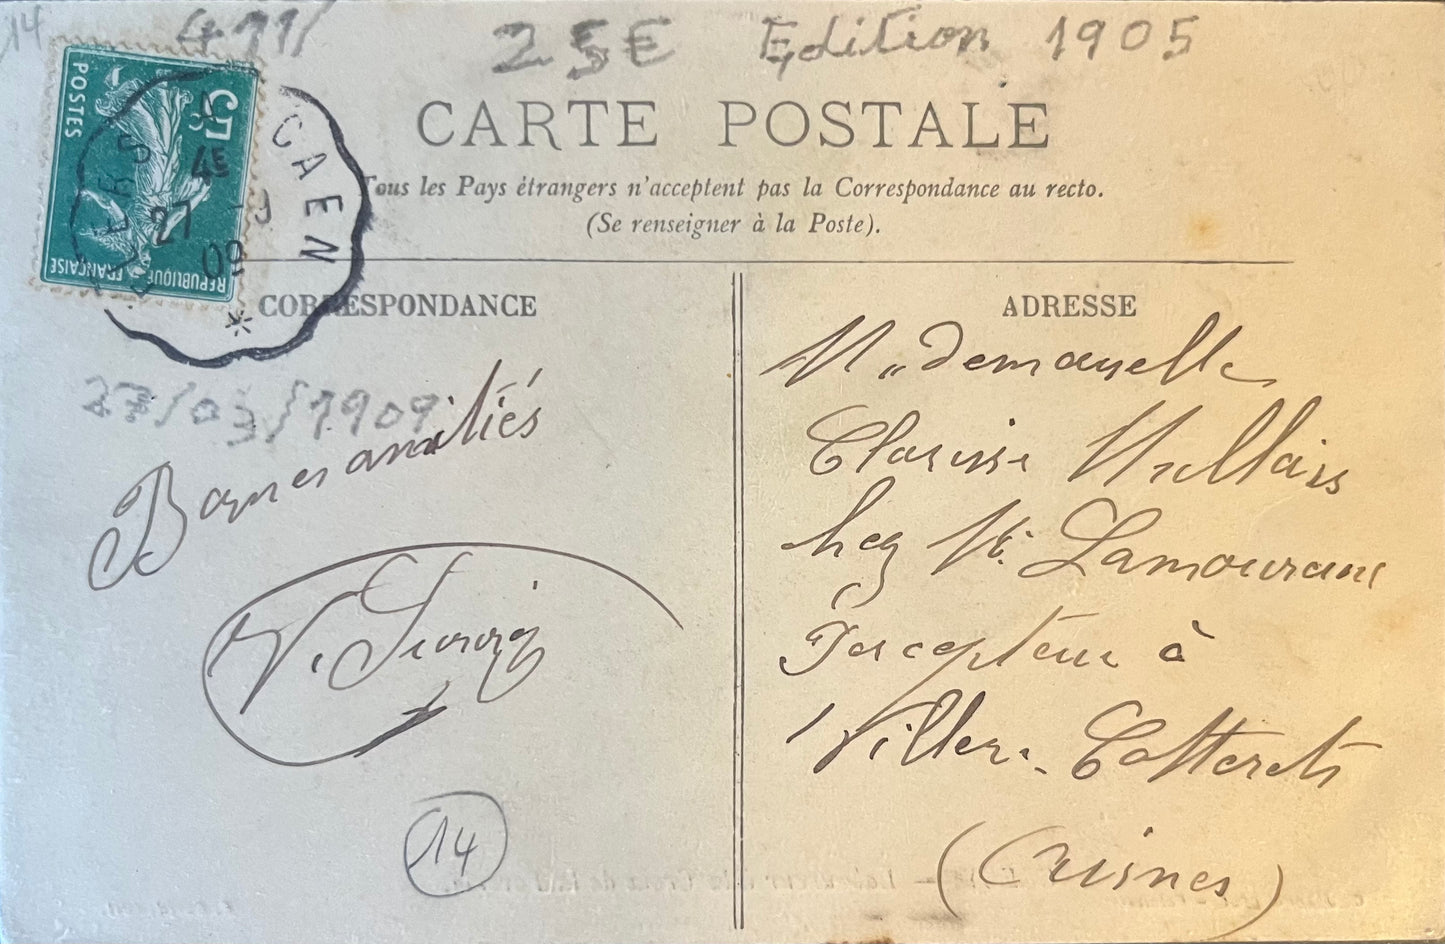 14
411/
25€ Edition 1905
CARTE POSTALE
Tous les Pays étrangers n'acceptent pas la Correspondance au recto.
(Se renseigner à la Poste).
POSTES
5c
REPUBLIQUE FRANÇAISE
CAEN
4E
27 -9
09
CORRESPONDANCE
27/03/1909
Bonnes amitiés
V.
14
ADRESSE
Mademoiselle
Clarisse
chez Mr Lamoureux
Percepteur à
Villers-Cotterets
(Aisnes)